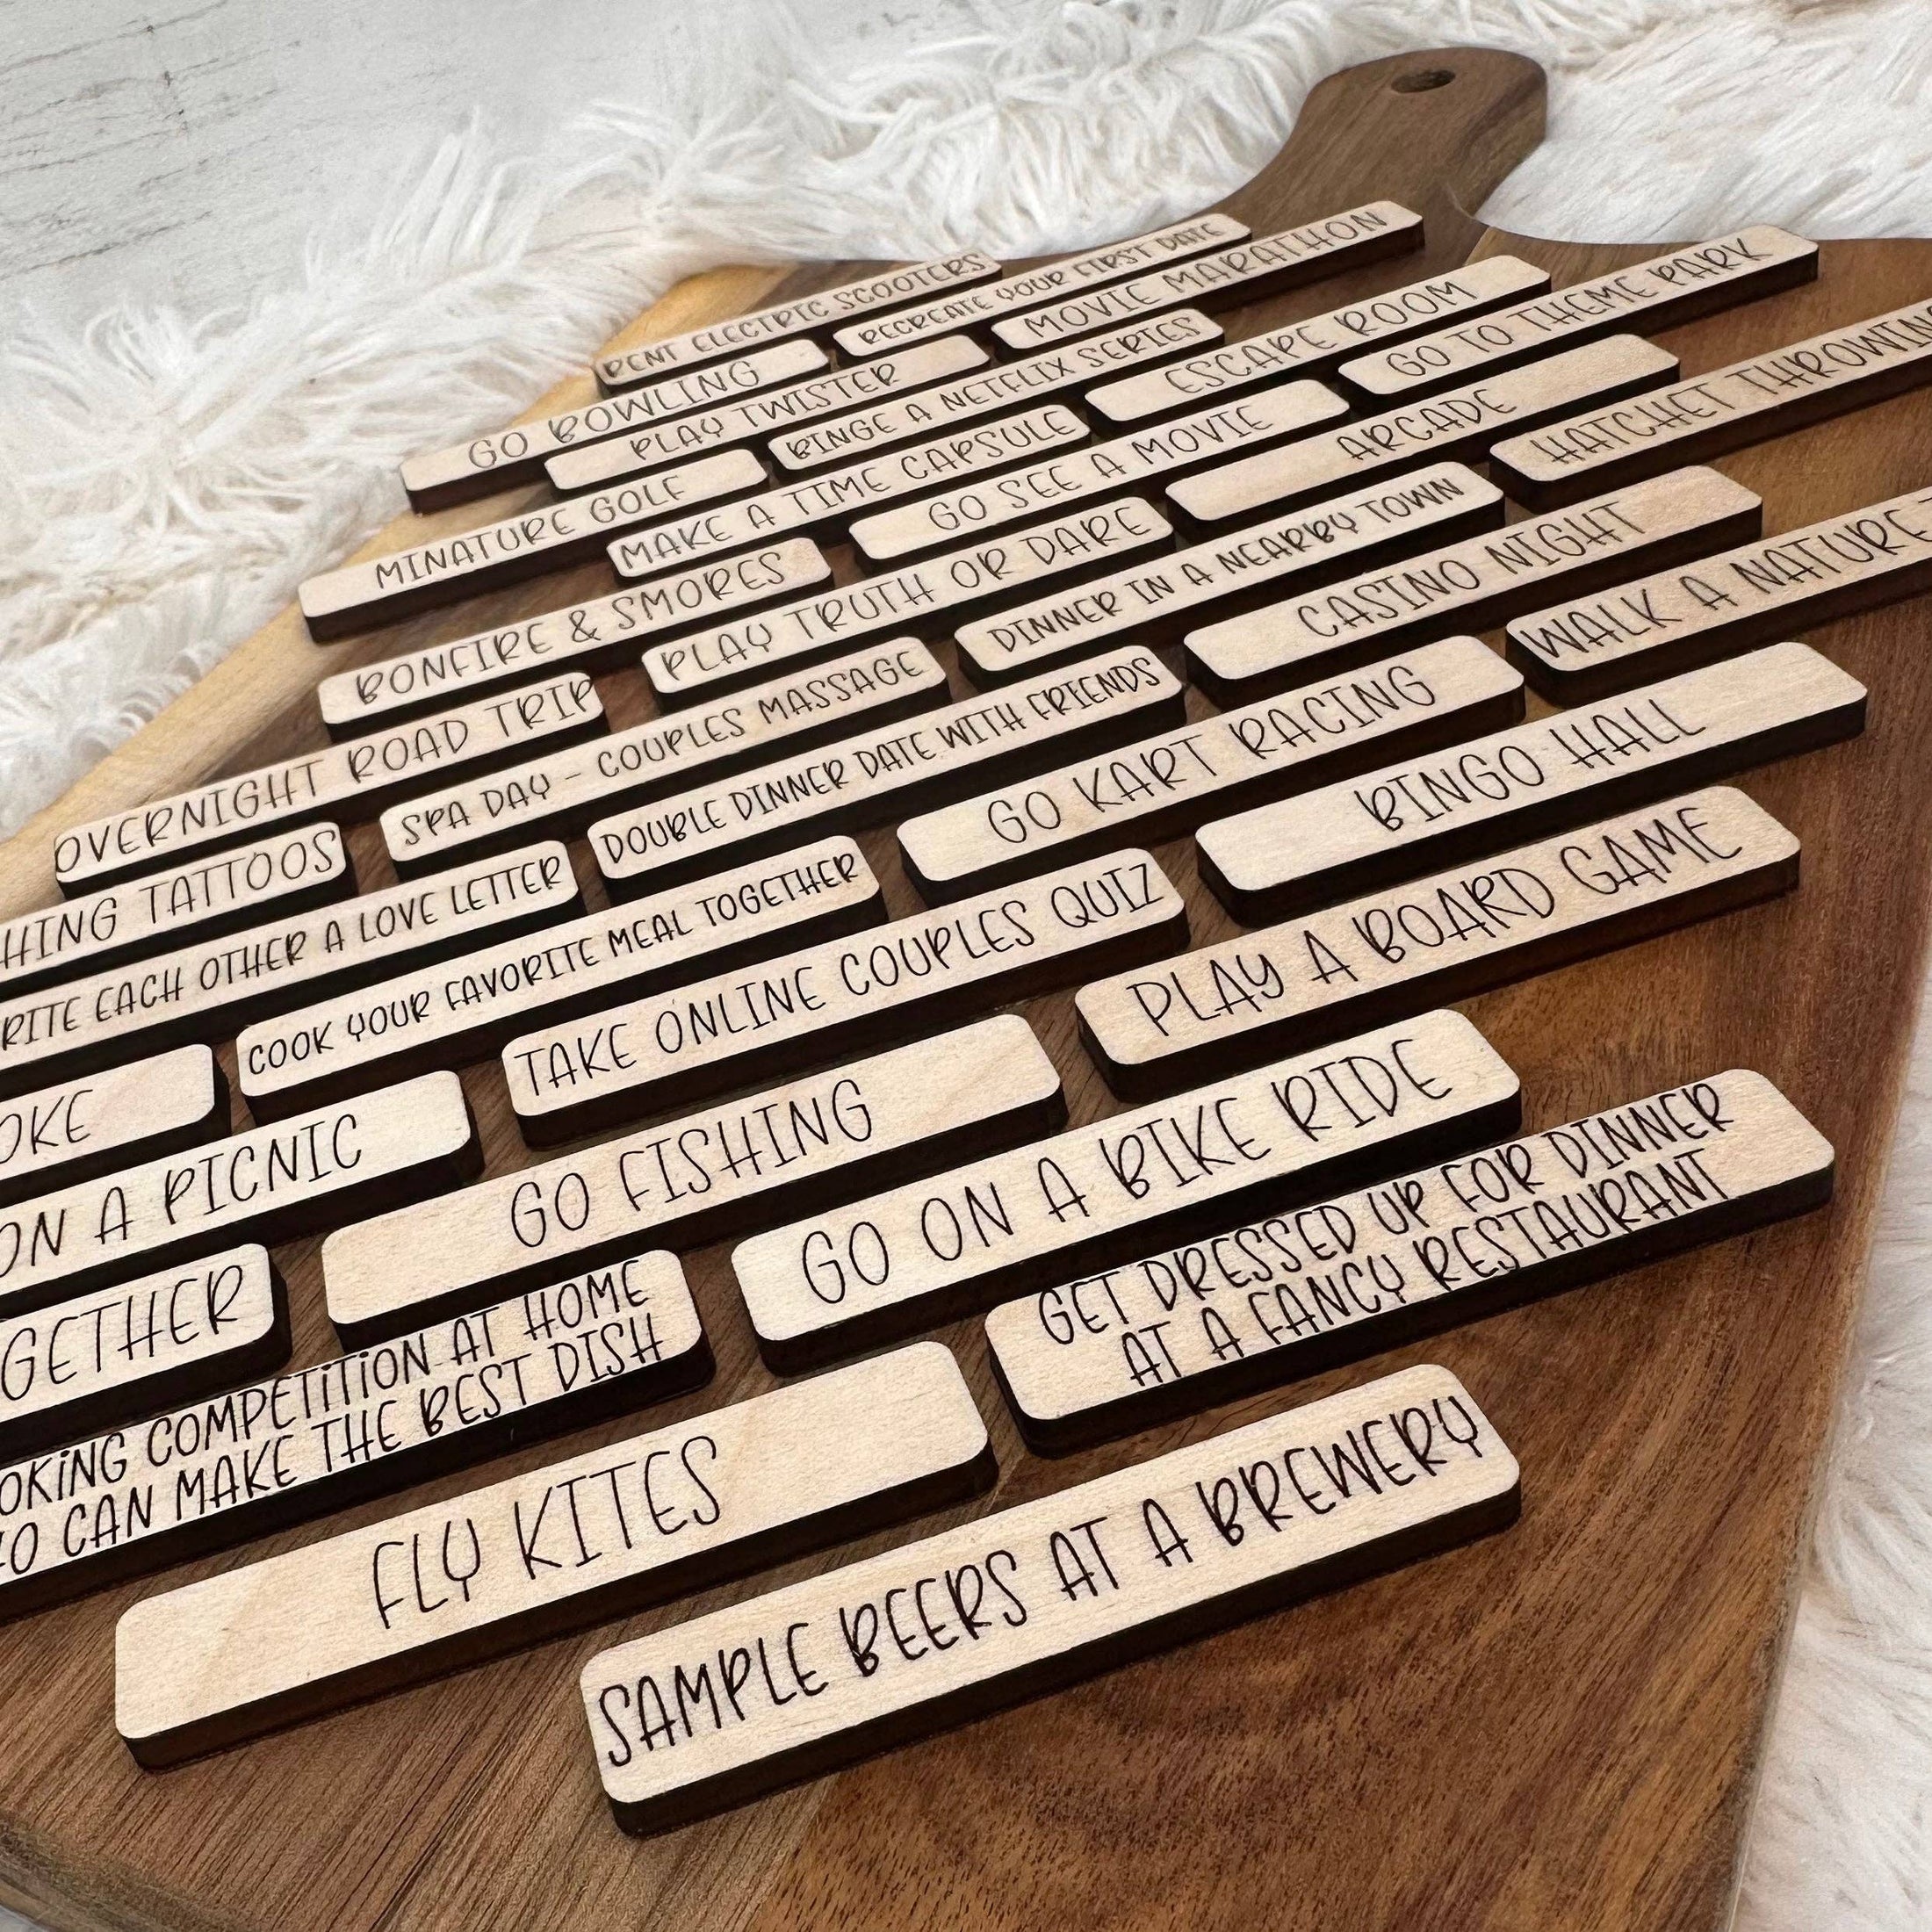 RENT ELECTRIC SCOOTERS
RECREATE YOUR FIRST DATE
MOVIE MARATHON
GO BOWLING
PLAY TWISTER
BINGE A NETFLIX SERIES
ESCAPE ROOM
GO TO THEME PARK
MINATURE GOLF
MAKE A TIME CAPSULE
GO SEE A MOVIE
ARCADE
HATCHET THROWIN
BONFIRE & SMORES
PLAY TRUTH OR DARE
DINNER IN A NEARBY TOWN
CASINO NIGHT
WALK A NATURE
OVERNIGHT ROAD TRIP
SPA DAY - COUPLES MASSAGE
DOUBLE DINNER DATE WITH FRIENDS
GO KART RACING
BINGO HALL
HING TATTOOS
RITE EACH OTHER A LOVE LETTER
COOK YOUR FAVORITE MEAL TOGETHER
TAKE ONLINE COUPLES QUIZ
PLAY A BOARD GAME
OKE
ON A PICNIC
GO FISHING
GO ON A BIKE RIDE
GET DRESSED UP FOR DINNER
AT A FANCY RESTAURANT
GETHER
OKING COMPETITION AT HOME
HO CAN MAKE THE BEST DISH
FLY KITES
SAMPLE BEERS AT A BREWERY